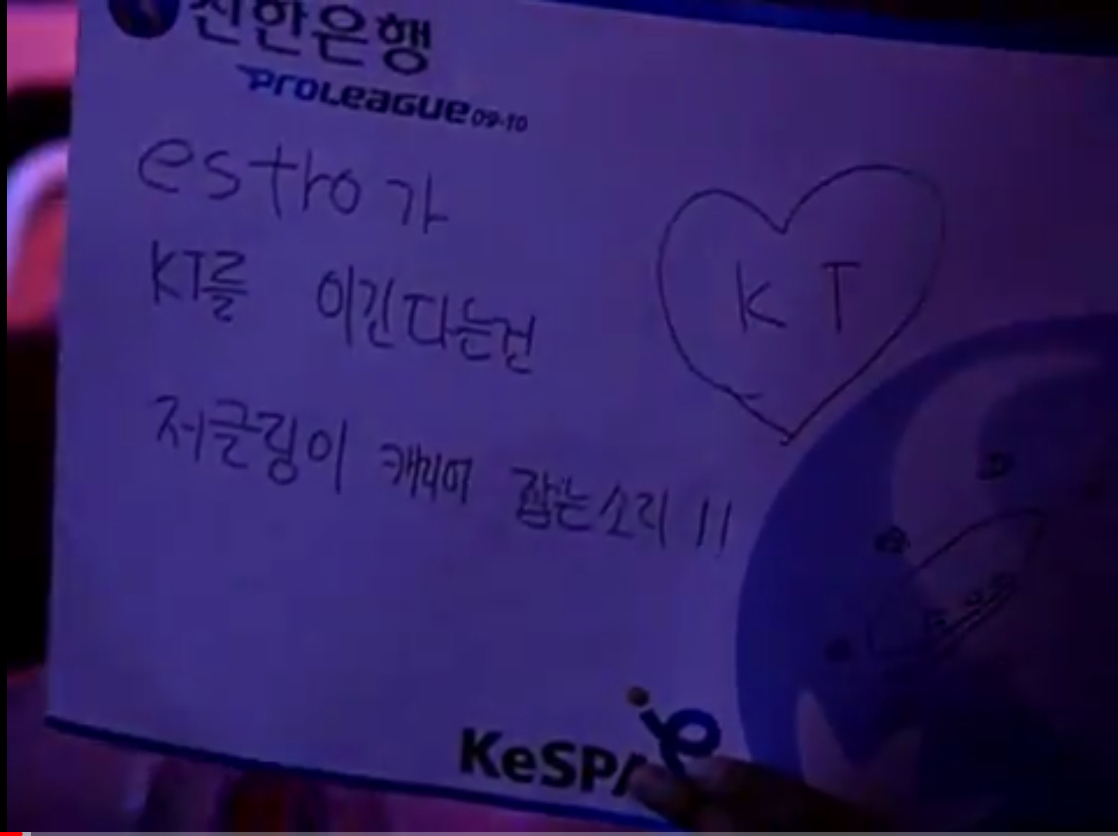 신한은행
PROLEAGUE 09-10
estro가
KT를 이긴다는건
저글링이 캐리어 잡는소리!!
K T
KeSPA